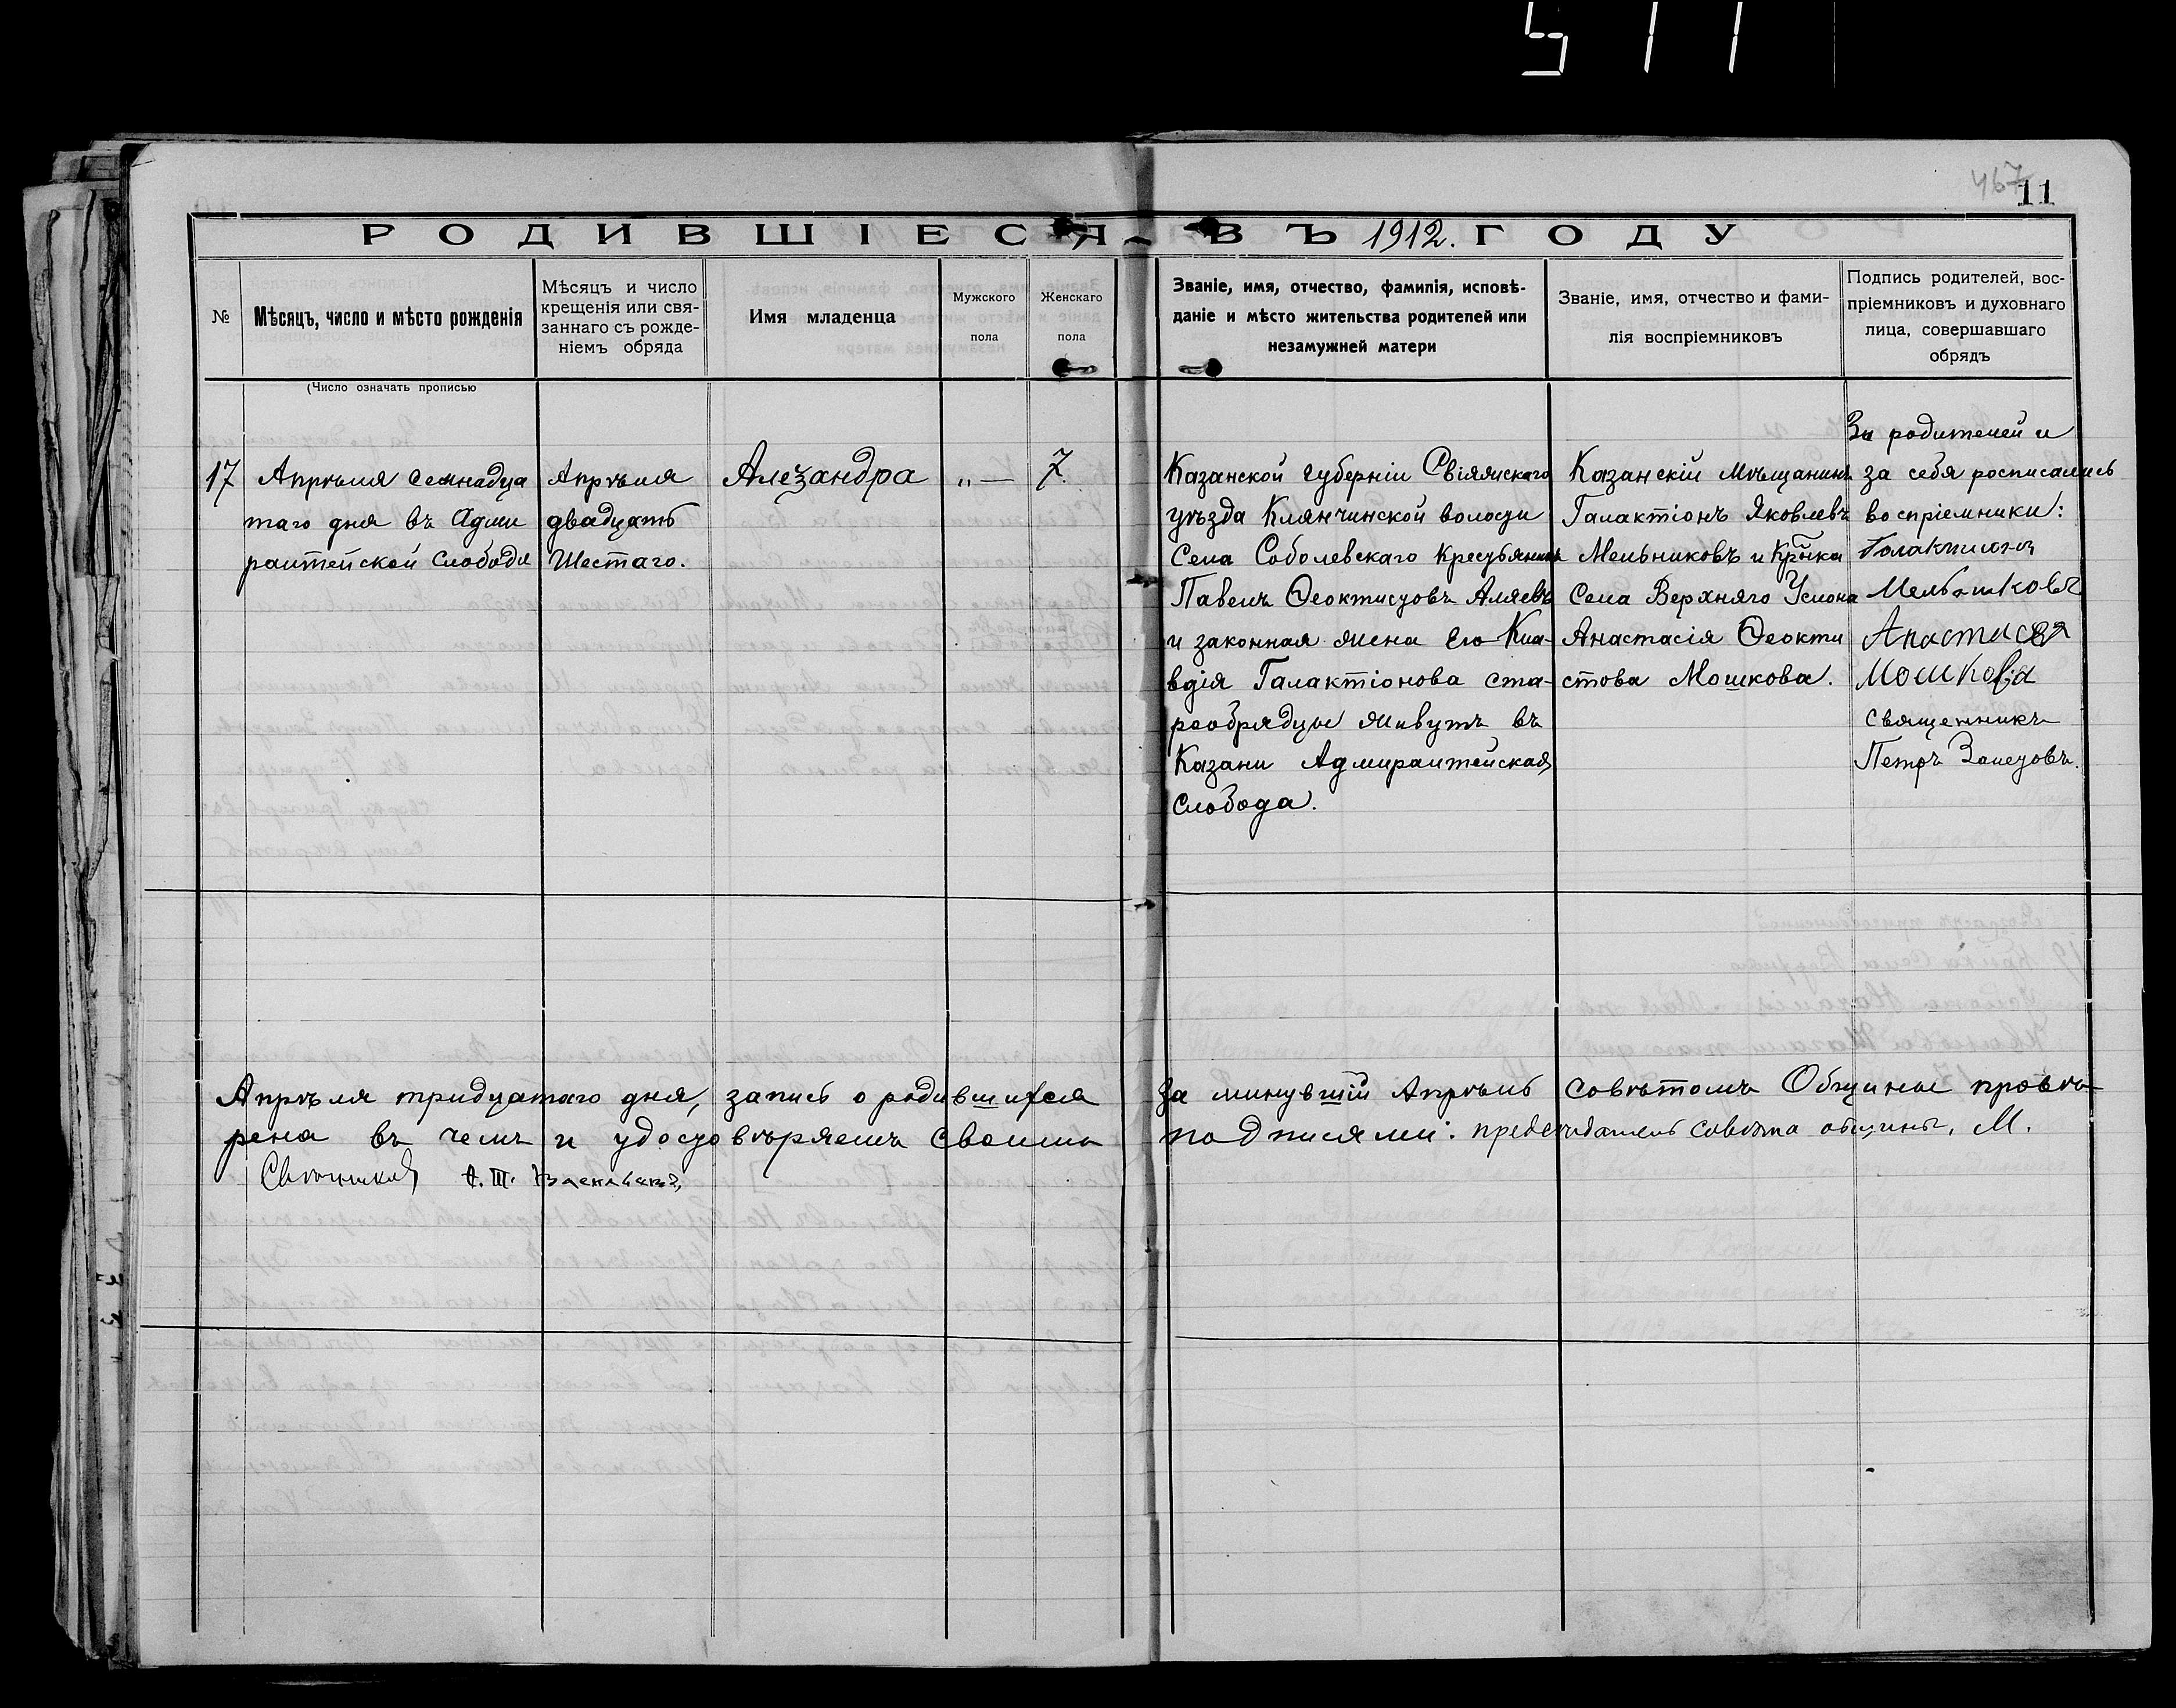 511
467
11
РОДИВШІЕСЯ ВЪ 1912. ГОДУ
№
Мѣсяцъ, число и мѣсто рожденія
Мѣсяцъ и число
крещенія или свя-
заннаго съ рожде-
ніемъ обряда
Имя младенца
Мужского
пола
Женскаго
пола
Званіе, имя, отчество, фамилія, исповѣ-
даніе и мѣсто жительства родителей или
незамужней матери
Званіе, имя, отчество и фами-
лія воспріемниковъ
Подпись родителей, вос-
пріемниковъ и духовнаго
лица, совершавшаго
обрядъ
(Число означать прописью
17
Апрѣля семнадца
таго дня въ Адми
ралтейской слободѣ
Апрѣля
двадцать
Шестаго.
Алеѯандра
„ —
7.
Казанской губерніи Свіяжскаго
уѣзда Клянчинской волости
Села Соболевскаго крестьянинъ
Павелъ Ѳеоктистовъ Аляевъ
и законная жена Его Кла-
вдія Галактіонова ста-
рообрядцы живутъ въ
Казани Адмиралтейская
слобода.
Казанскій мѣщанинъ
Галактіонъ Яковлевъ
Мельниковъ и Кр̃нка
Села Верхняго Услона
Анастасія Ѳеокти
стова Мошкова.
За родителей и
за себя росписались
воспріемники:
Галактионъ
Мельниковъ
Анастасия
Мошкова
Священникъ
Петръ Залетовъ.
Апрѣля тридцатаго дня, запись о родившихся за минувшій Апрѣль совѣтомъ Общины провѣ-
рена въ чемъ и удостовѣряемъ своими подписями: председатель совѣта общины, М.